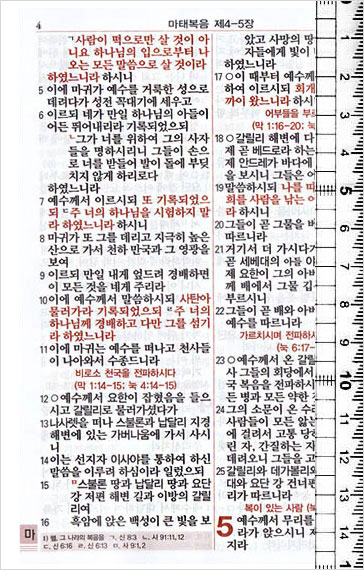 4
마태복음 제4-5장
ㄱ사람이 떡으로만 살 것이 아
니요 하나님의 입으로부터 나
오는 모든 말씀으로 살 것이라
하였느니라 하시니
5 이에 마귀가 예수를 거룩한 성으로
데려다가 성전 꼭대기에 세우고
6 이르되 네가 만일 하나님의 아들이
어든 뛰어내리라 기록되었으되
ㄴ그가 너를 위하여 그의 사자
들을 명하시리니 그들이 손으
로 너를 받들어 발이 돌에 부딪
치지 않게 하리로다
하였느니라
7 예수께서 이르시되 또 기록되었으
되 ㄷ주 너의 하나님을 시험하지 말
라 하였느니라 하시니
8 마귀가 또 그를 데리고 지극히 높은
산으로 가서 천하 만국과 그 영광을
보여
9 이르되 만일 내게 엎드려 경배하면
이 모든 것을 네게 주리라
10 이에 예수께서 말씀하시되 사탄아
물러가라 기록되었으되 ㄹ주 너의
하나님께 경배하고 다만 그를 섬기
라 하였느니라
11 이에 마귀는 예수를 떠나고 천사들
이 나아와서 수종드니라
비로소 천국을 전파하시다
(막 1:14-15; 눅 4:14-15)
12 ○예수께서 요한이 잡혔음을 들으
시고 갈릴리로 물러가셨다가
13 나사렛을 떠나 스불론과 납달리 지경
해변에 있는 가버나움에 가서 사시
니
14 이는 선지자 이사야를 통하여 하신
말씀을 이루려 하심이라 일렀으되
15 ㅁ스불론 땅과 납달리 땅과 요단
강 저편 해변 길과 이방의 갈릴
리여
16 흑암에 앉은 백성이 큰 빛을 보
마
1) 헬, 그 나라의 복음을 ㄱ. 신 8:3 ㄴ. 시 91:11, 12
ㄷ. 신 6:16 ㄹ. 신 6:13 ㅁ. 사 9:1, 2
았고 사망의 땅
자들에게 빛이
하였느니라
17 ○이 때부터 예수께
하여 이르시되 회개
까이 왔느니라 하시
어부들을 부르
(막 1:16-20; 눅
18 ○갈릴리 해변에
제 곧 베드로라 하는
제 안드레가 바다에
을 보시니 그들은 어
19 말씀하시되 나를 따
희를 사람을 낚는 어
라 하시니
20 그들이 곧 그물을 버
따르니라
21 거기서 더 가시다가
곧 세베대의 아들 야
제 요한이 그의 아버
께 배에서 그물 깁
부르시니
22 그들이 곧 배와 아버
예수를 따르니라
가르치시며 전파하시
(눅 6:17-
23 ○예수께서 온 갈릴
사 그들의 회당에서
국 복음을 전파하시
든 병과 모든 약한
24 그의 소문이 온 수리
사람들이 모든 앓는
에 걸려서 고통 당하
린 자, 간질하는 자
데려오니 그들을 고
25 갈릴리와 데가볼리와
대와 요단 강 건너편
리가 따르니라
복이 있는 사람 (눅
5 예수께서 무리를
라가 앉으시니 제
지라
5
10